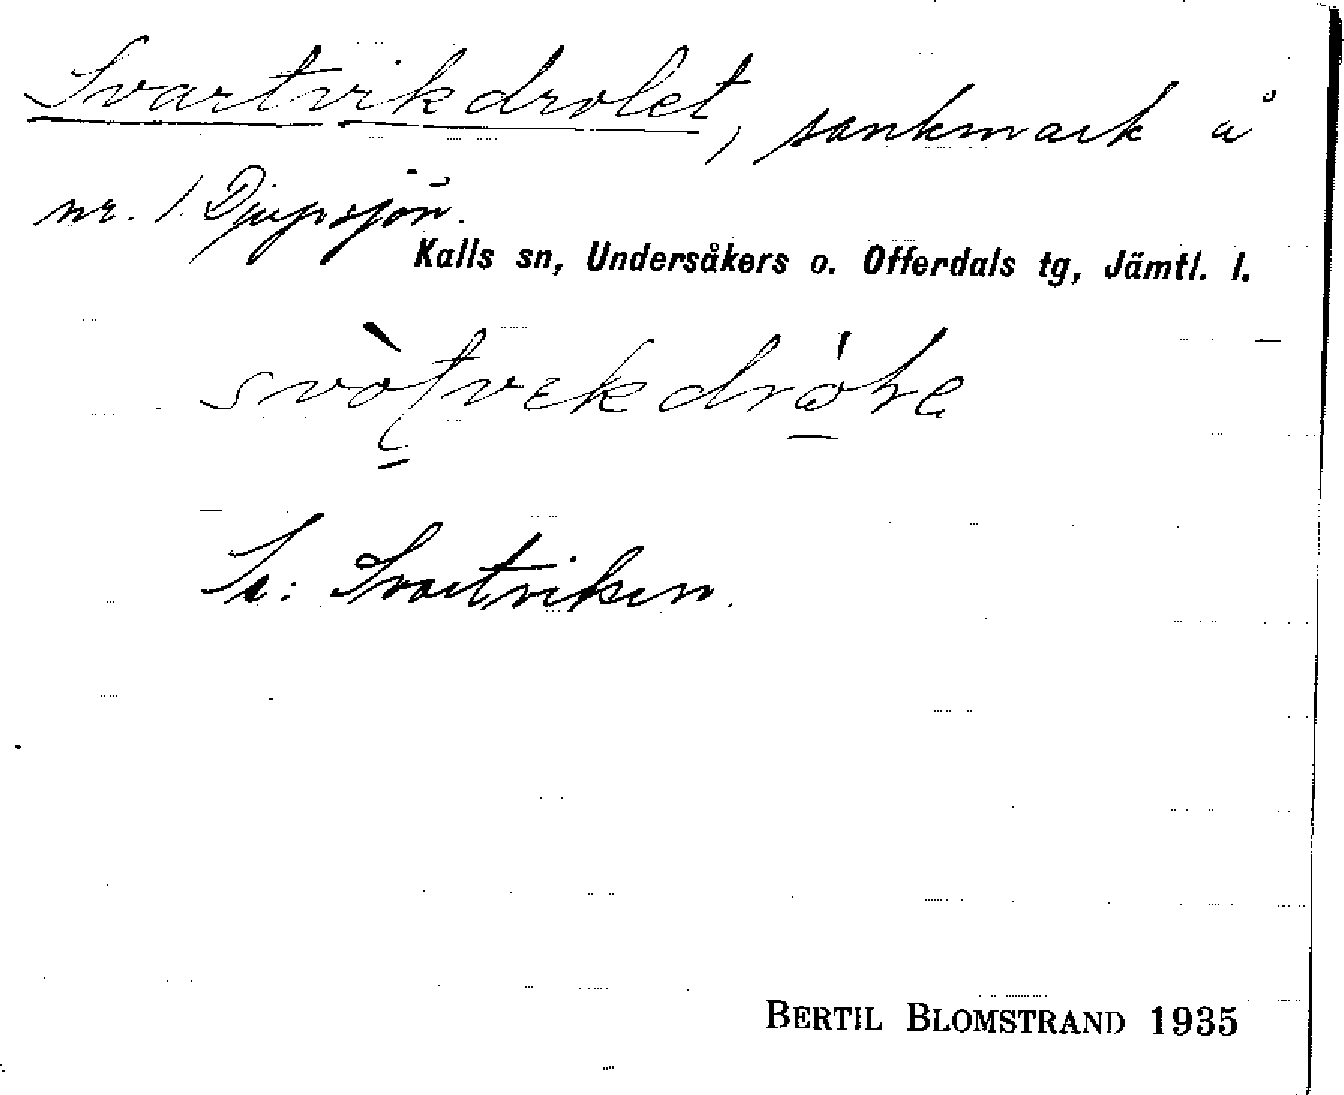 Svartvikdrolet, sankmark å
nr. 1 Djupsjön.
Kalls sn, Undersåkers o. Offerdals tg, Jämtl. l.
Se: Svartviken.
BERTIL BLOMSTRAND 1935